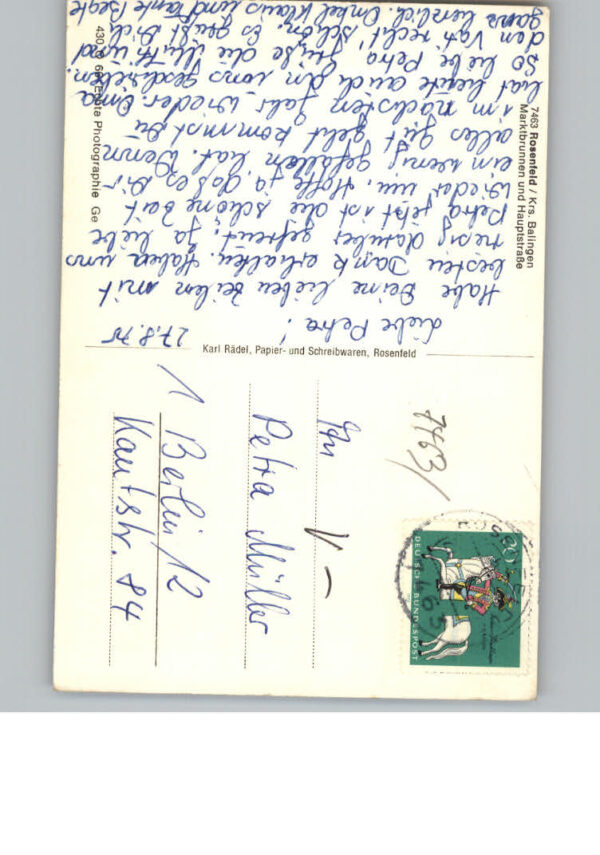 27.8.70
Liebe Petra!
Habe Deine lieben Zeilen mit
besten Dank erhalten. Haben uns
riesig darüber gefreut. Ja liebe
Petra jetzt ist die schöne Zeit
wieder um. Hoffe ja, daß es Dir
ein wenig gefallen hat. Wenn
alles gut geht kommst Du
im nächsten Jahr wieder. Oma
hat heute auch an uns geschrieben.
So liebe Petra Grüße die Mutti und
den Vati recht schön. Es grüßt Dich
ganz herzlich. Onkel Klaus und Tante Beate
7463 Rosenfeld / Krs. Balingen
Marktbrunnen und Hauptstraße
Echte Photographie
Karl Rädel, Papier- und Schreibwaren, Rosenfeld
7463
Petra Müller
1 Berlin 12
Kantstr. 84
DEUTSCHE BUNDESPOST